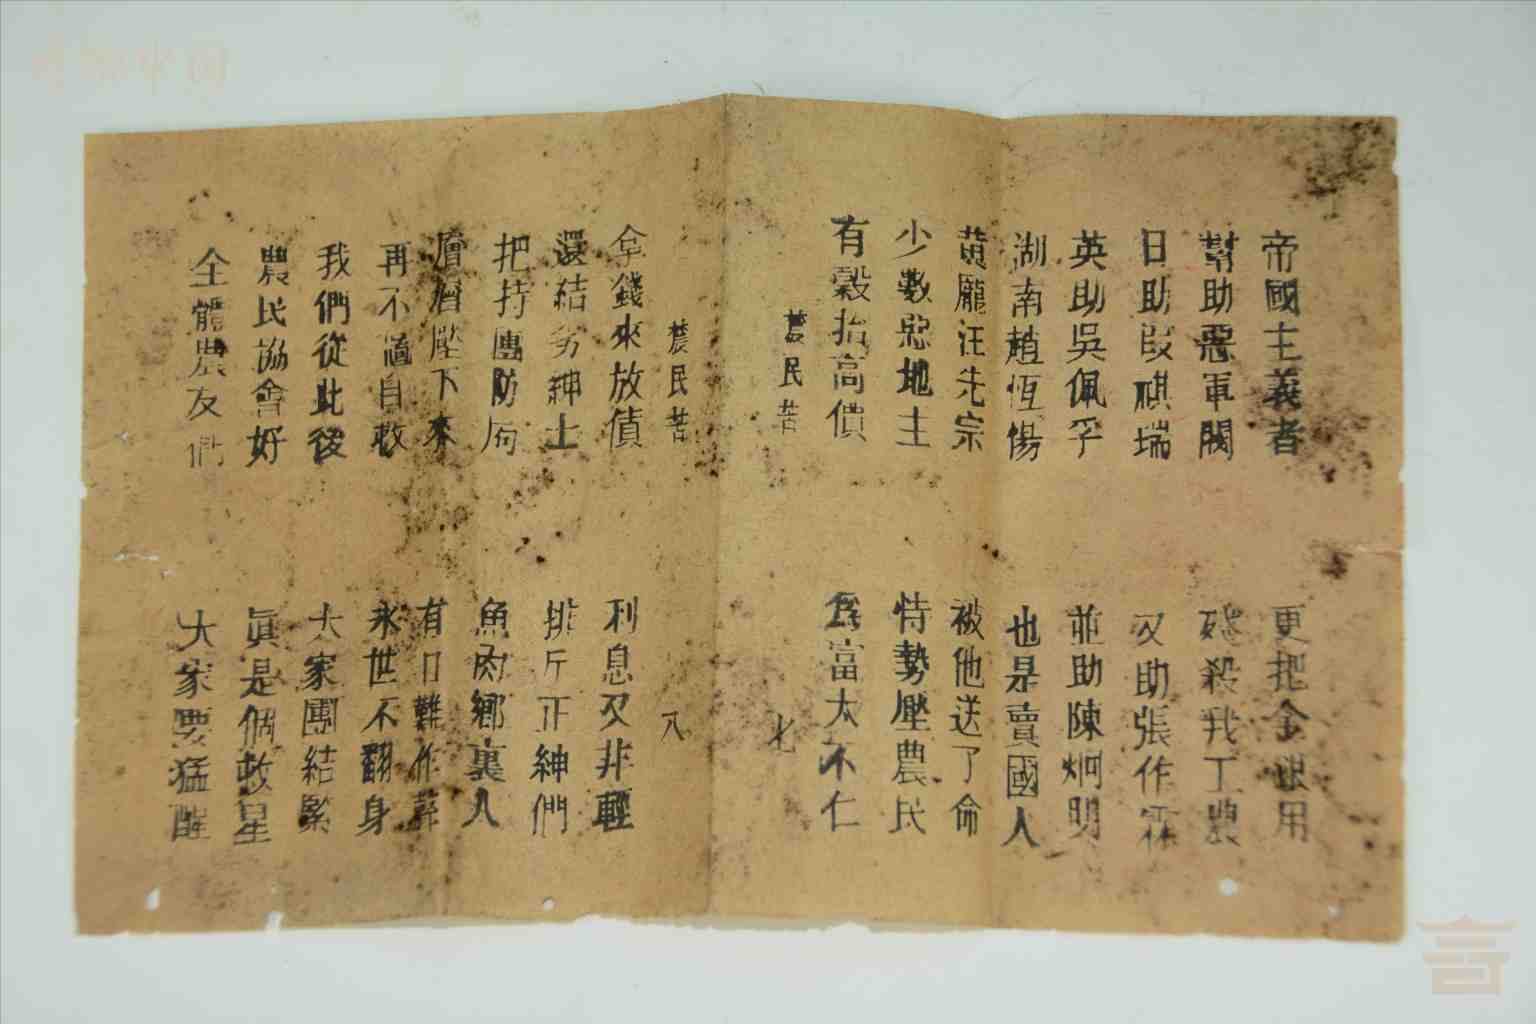 帝國主義者 更把金銀用
幫助惡軍閥 殘殺我工農
日助段祺瑞 又助張作霖
英助吳佩孚 並助陳炯明
湖南趙恆惕 也是賣國人
黃龐汪先宗 被他送了命
少數惡地主 恃勢壓農民
有穀抬高價 爲富太不仁
農民苦 七
農民苦 八
拿錢來放債 利息又非輕
還結劣紳士 排斥正紳們
把持團防局 魚肉鄉裏人
層層壓下來 有口難作
再不自救 永世不翻身
我們從此後 大家團結緊
農民協會好 眞是個救星
全體農友們 大家要猛醒